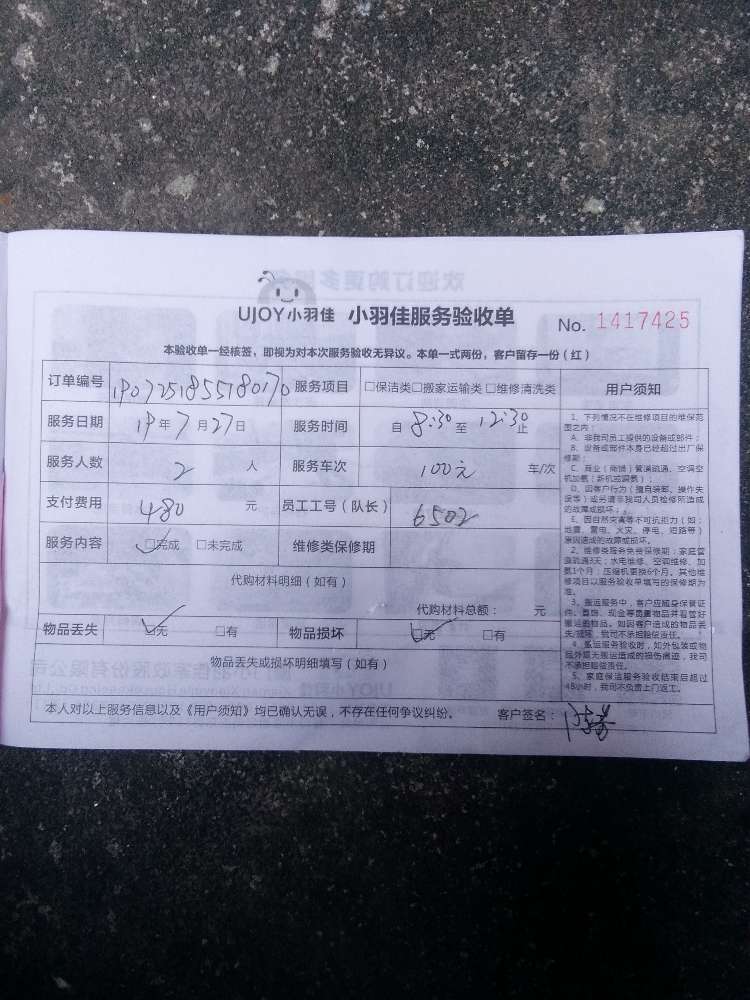 UJOY小羽佳 小羽佳服务验收单 No. 1417425
本验收单一经核签，即视为对本次服务验收无异议。本单一式两份，客户留存一份（红）
订单编号 1907251855180170 服务项目 □保洁类□搬家运输类□维修清洗类 用户须知
服务日期 19年7月27日 服务时间 自 8:30 至 12:30 止
服务人数 2 人 服务车次 100元 车/次
支付费用 480 元 员工工号（队长） 6502
服务内容 □完成 □未完成 维修类保修期
代购材料明细（如有）
代购材料总额： 元
物品丢失 □无 □有 物品损坏 □无 □有
物品丢失或损坏明细填写（如有）
本人对以上服务信息以及《用户须知》均已确认无误，不存在任何争议纠纷。 客户签名：
1、下列情况不在维修项目的维保范
围之内：
A、非我司员工提供的设备或部件；
B、设备或部件本身已经超过出厂保
修期；
C、商业（商铺）管道疏通、空调空
机加氨（新机或铜氨）；
D、因客户行为（擅自装卸、操作失
误等）或另请非我司人员检修所造成
的故障或损坏；
E、因自然灾害等不可抗拒力（如：
地震、雷电、火灾、停电、短路等）
原因造成的故障或损坏。
2、维修类服务免费保修期：家庭管
道疏通3天；水电维修、空调维修、加
氨1个月；压缩机更换6个月。其他维
修项目以服务验收单填写的保修期为
准。
3、搬运服务中，客户应随身保管证
件、首饰、现金等贵重物品并看管好
搬运的物品。如因客户造成的物品丢
失/损坏，我司不承担赔偿责任。
4、搬运服务验收时，如外包装或物
品外观无搬运造成的损伤痕迹，我司
不承担赔偿责任。
5、家庭保洁服务验收结束后超过
48小时，我司不负责上门返工。